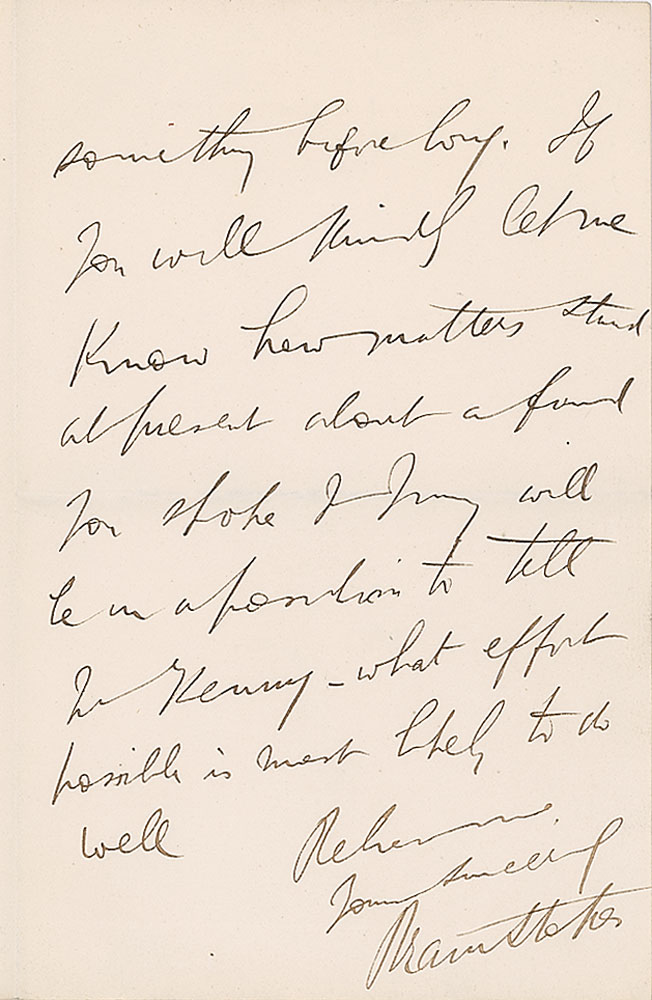 something before long. If
you will kindly let me
know how matters stand
at present about a fund
you spoke of I may will
be in a position to tell
Mr Kenny – what effort
possible is most likely to do
well
Believe me
Yours sincerely
Bram Stoker